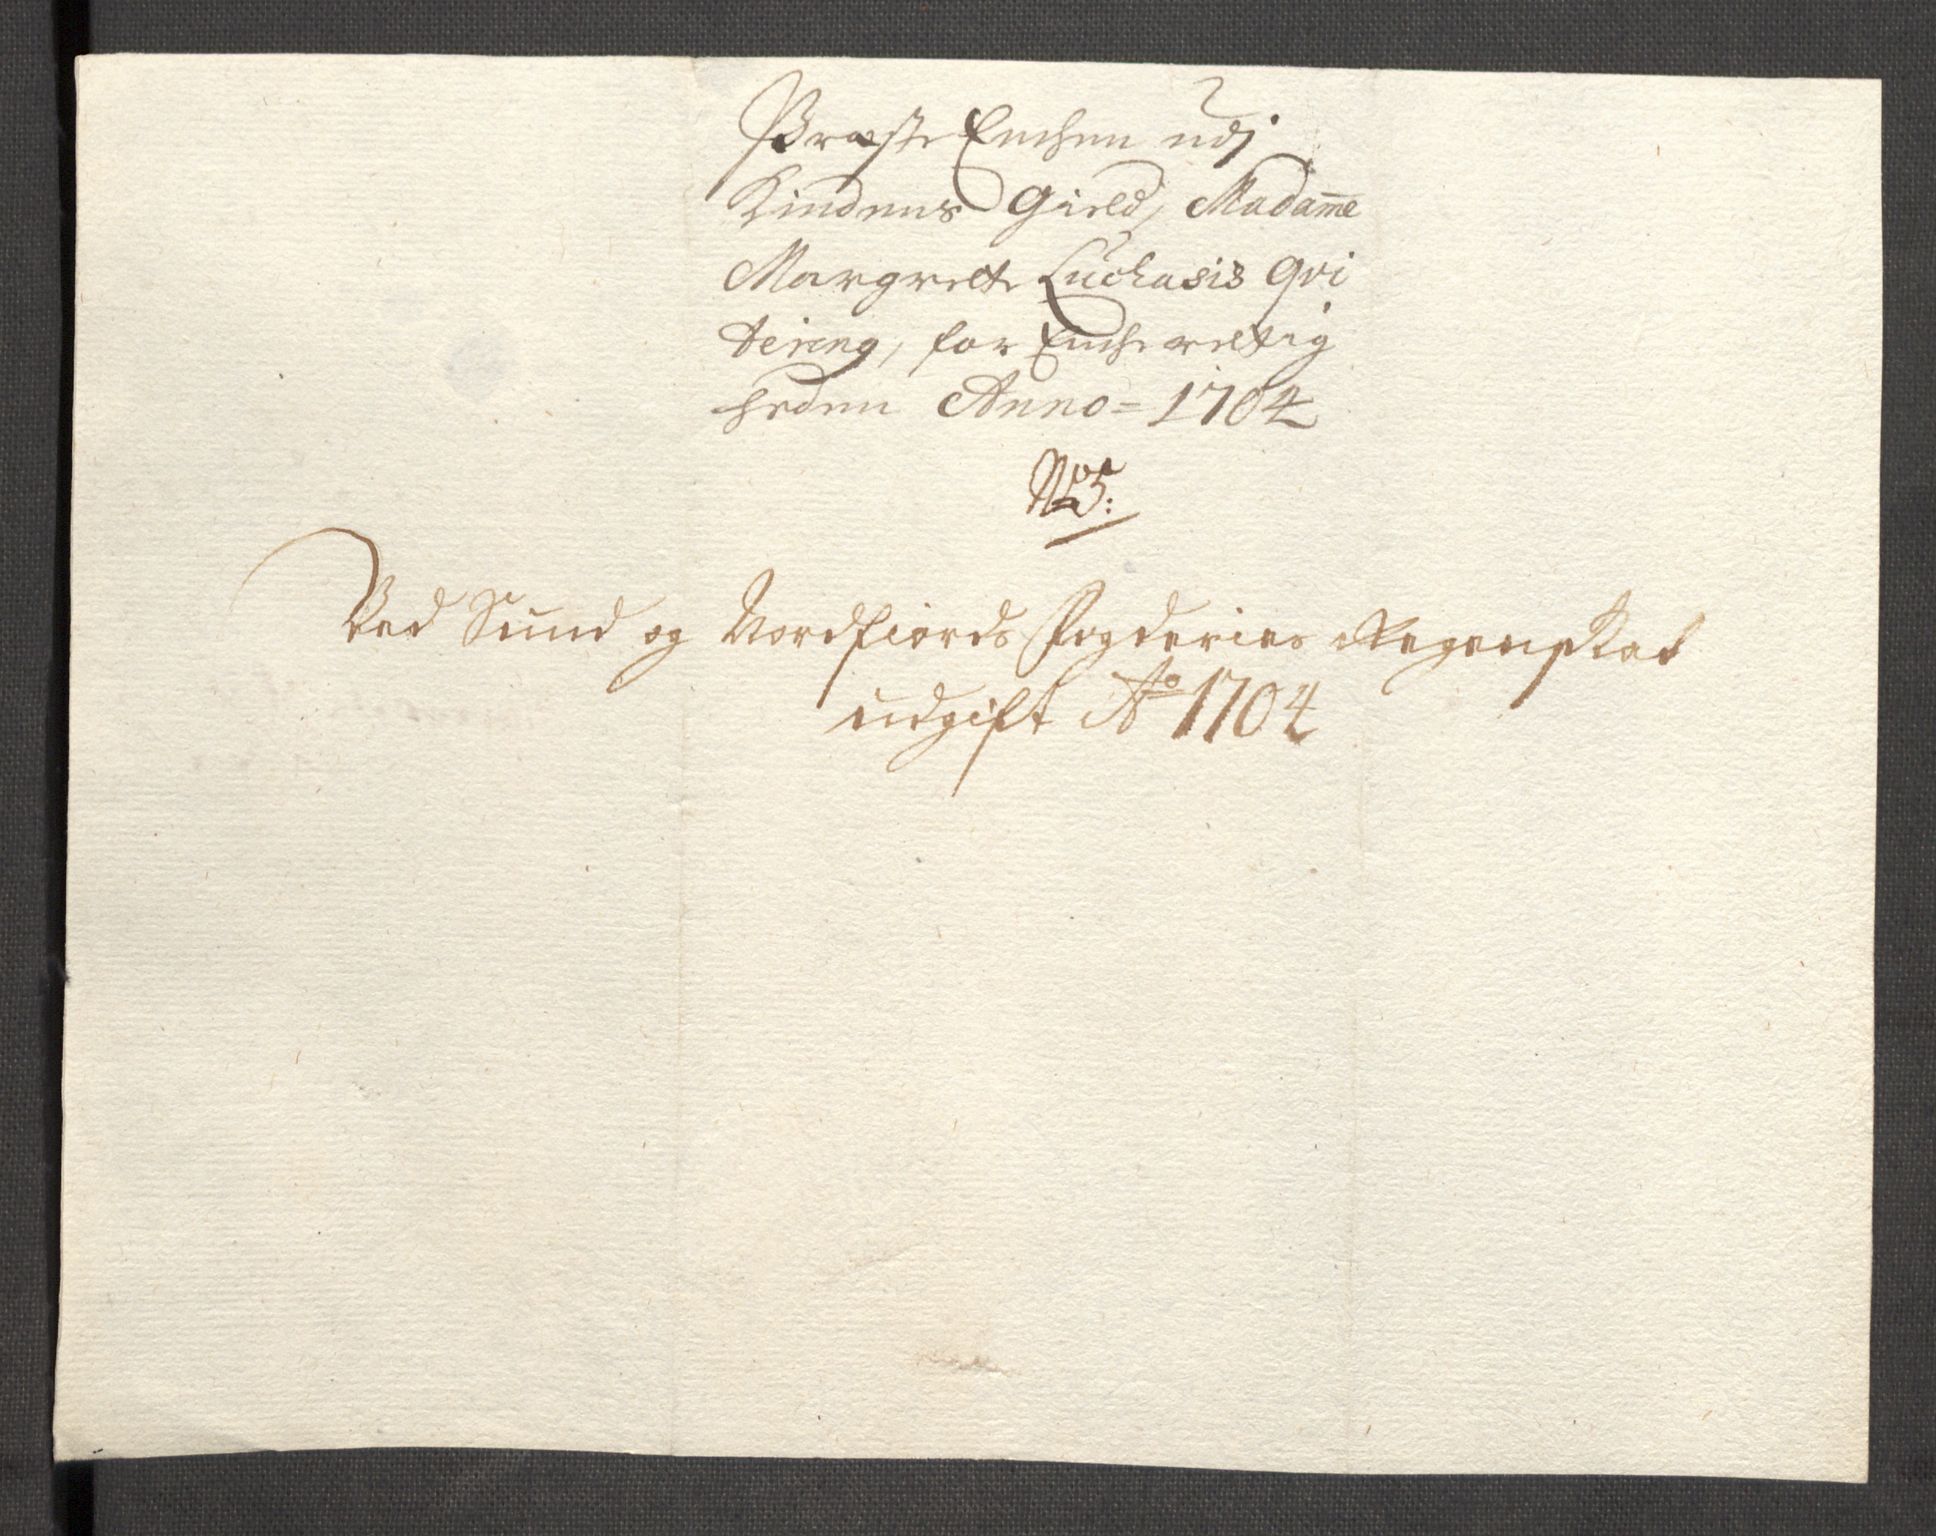 Præste Enchen udj
Kindens Gield, Madam̅e
Margrete Luchasis Qvi
tering, for Enche rettig
heden Anno = 1704
No 5:
Ved Sund og Nordfiords Fogderies Regenskab
udgift Ao 1704